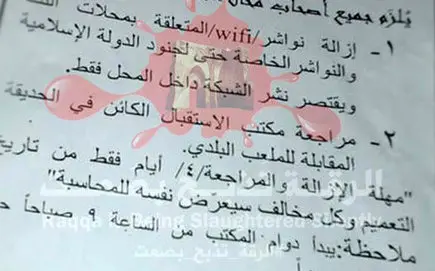 يُلزم جميع أصحاب
١- إزالة نواشر/wifi/المتعلقة بمحلات
والنواشر الخاصة حتى لجنود الدولة الإسلامية
ويقتصر نشر الشبكة داخل المحل فقط.
٢- مراجعة مكتب الاستقبال الكائن في الحديقة
المقابلة للملعب البلدي.
"مهلة الإزالة والمراجعة/٤/ أيام فقط من تاريخ
التعميم وكل مخالف سيعرّض نفسه للمحاسبة"
ملاحظة: يبدأ دوام المكتب من الساعة ٩ صباحاً
الرقة تذبح بصمت
Raqqa is Being Slaughtered Silently
الرقة_تذبح_بصمت